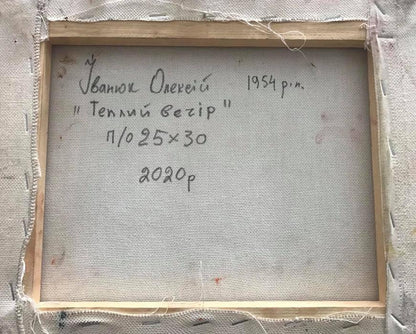 Іванюк Олексій 1954 р.н.
"Теплий вечір"
п/о 25×30
2020р